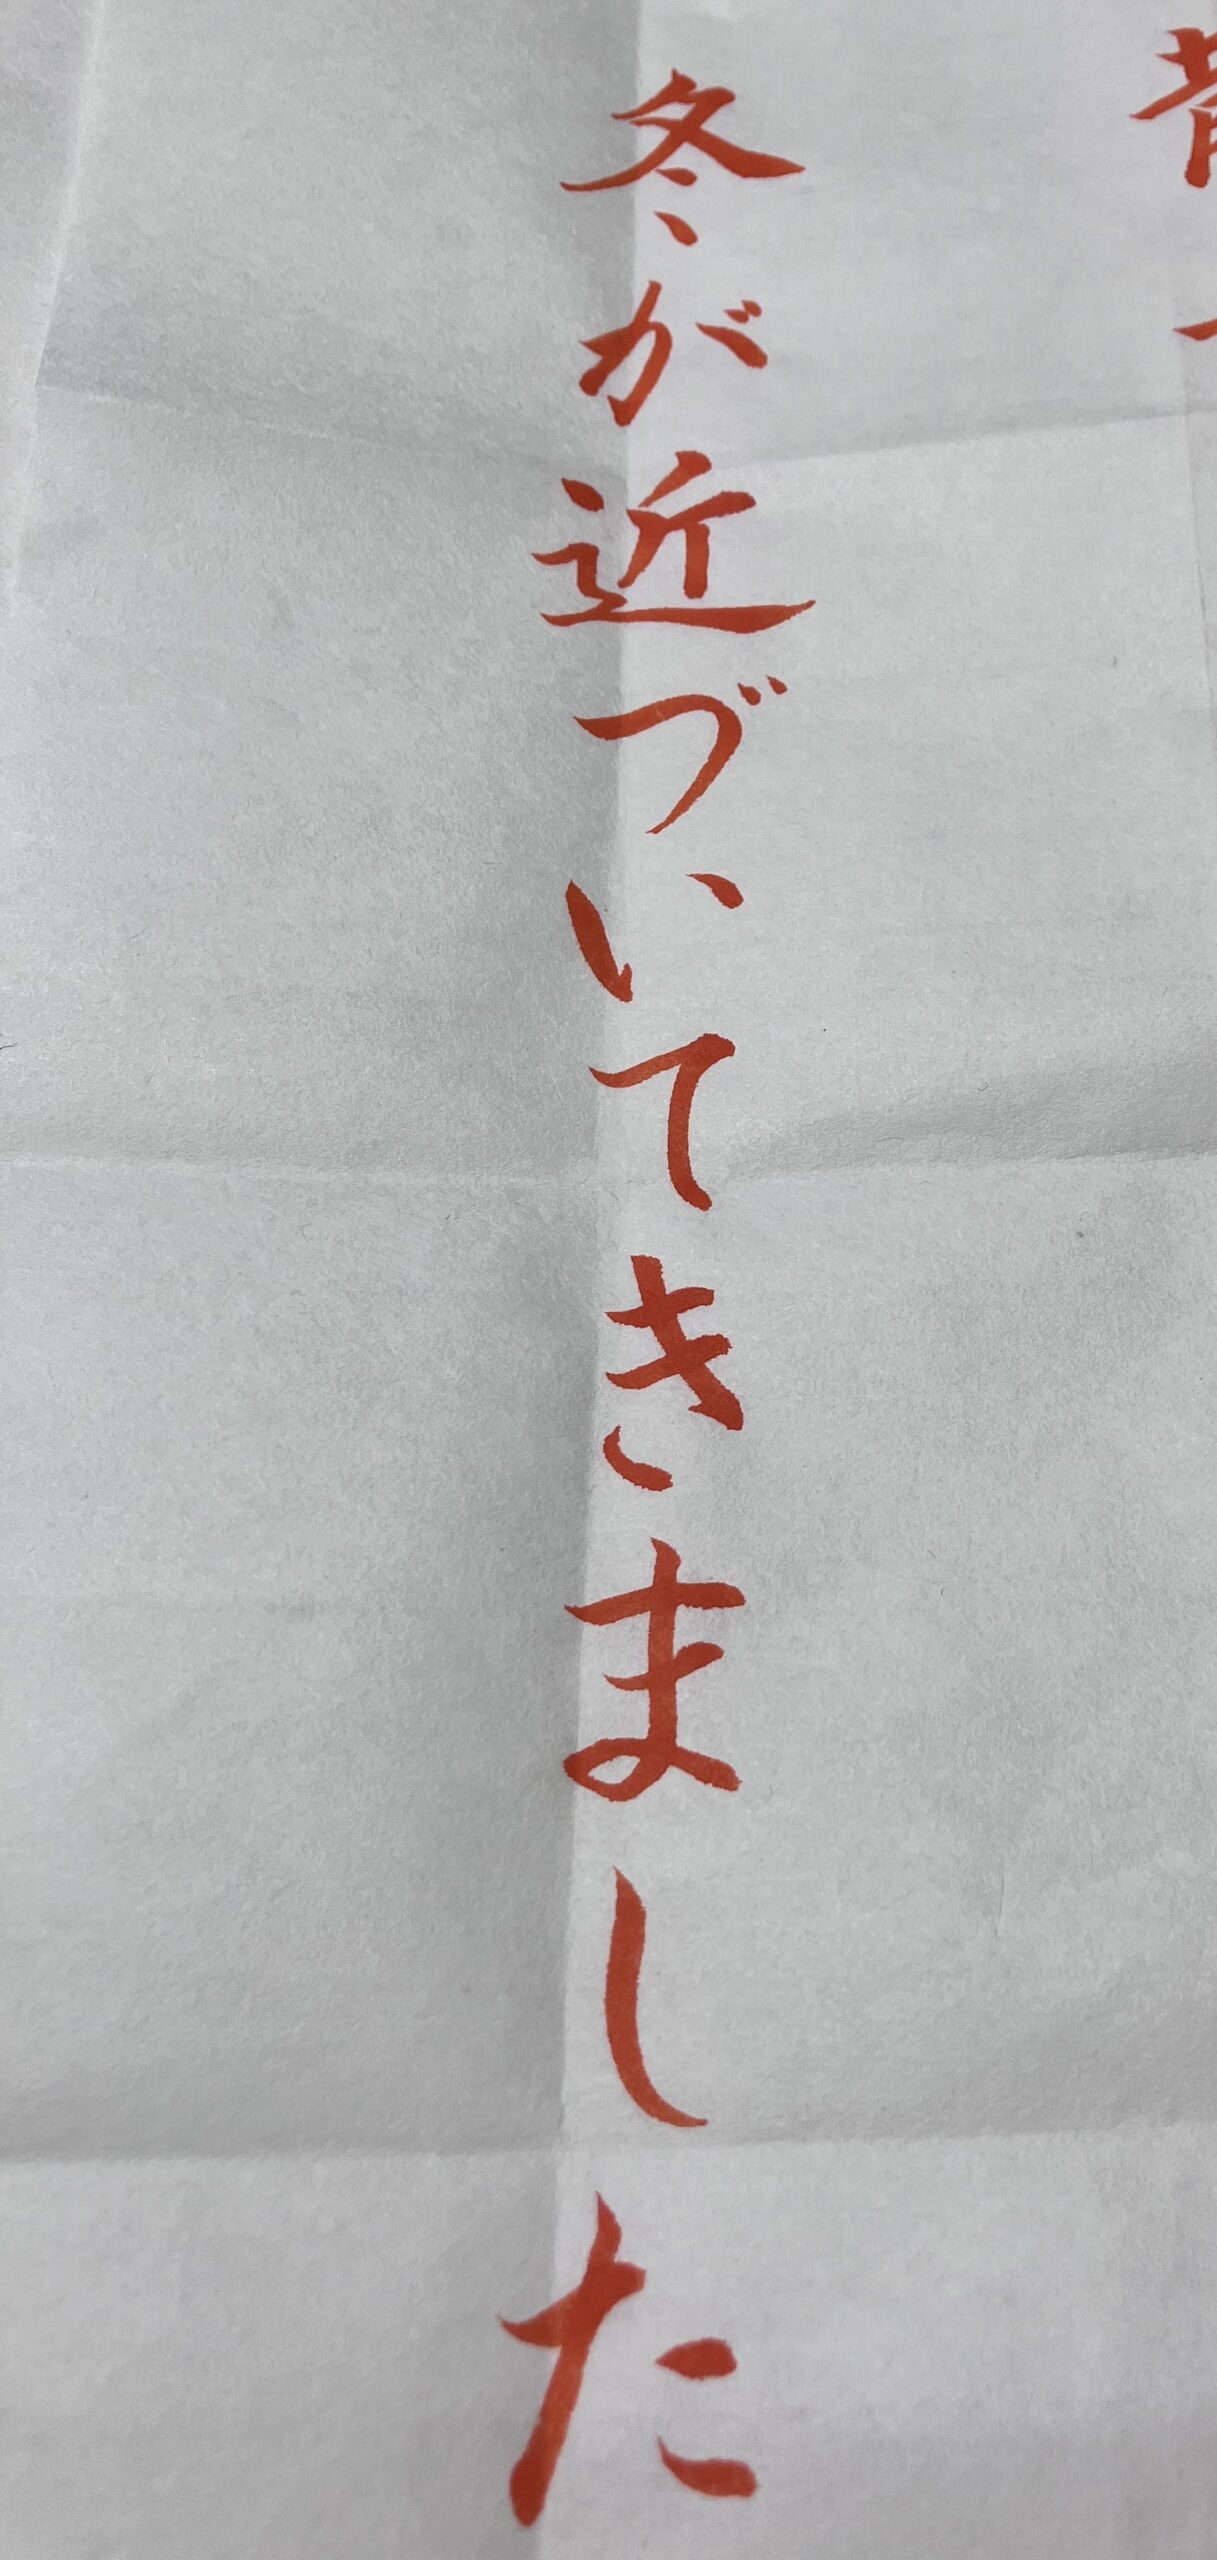 冬が近づいてきました